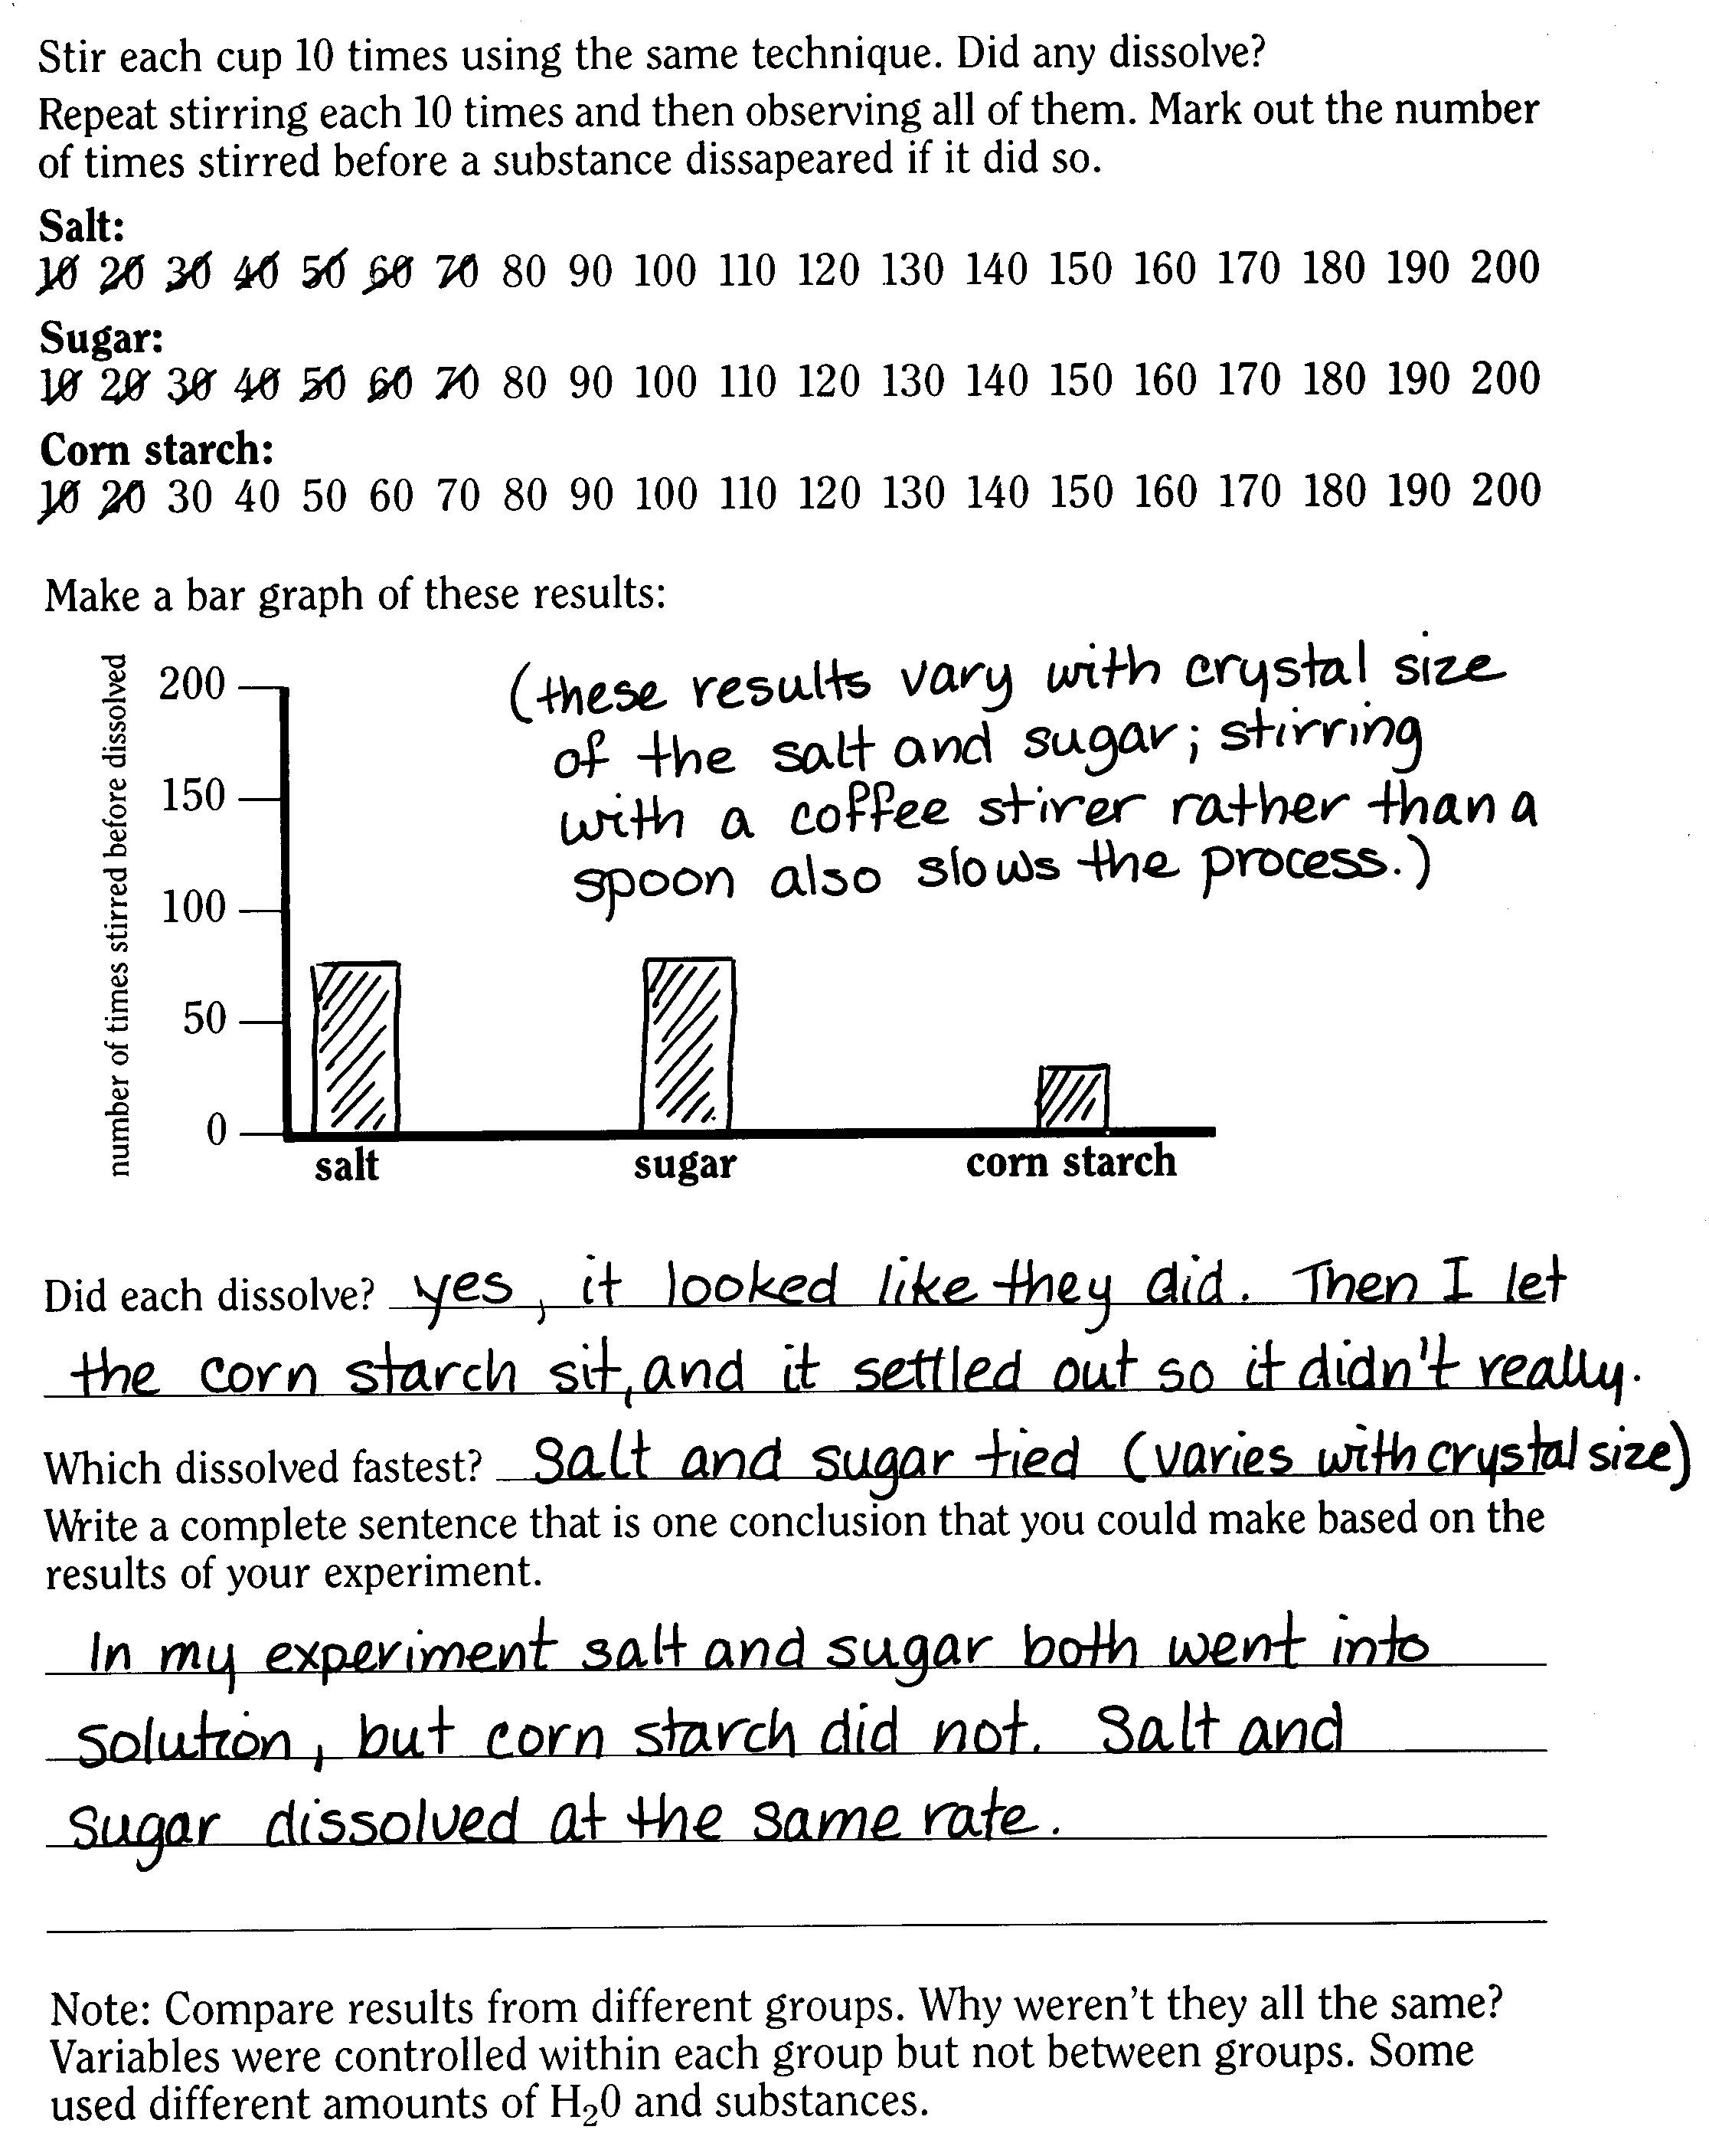 Stir each cup 10 times using the same technique. Did any dissolve?
Repeat stirring each 10 times and then observing all of them. Mark out the number
of times stirred before a substance dissapeared if it did so.
Salt:
10 20 30 40 50 60 70 80 90 100 110 120 130 140 150 160 170 180 190 200
Sugar:
10 20 30 40 50 60 70 80 90 100 110 120 130 140 150 160 170 180 190 200
Corn starch:
10 20 30 40 50 60 70 80 90 100 110 120 130 140 150 160 170 180 190 200
Make a bar graph of these results:
number of times stirred before dissolved
200
150
100
50
0
(these results vary with crystal size
of the salt and sugar; stirring
with a coffee stirer rather than a
spoon also slows the process.)
salt sugar corn starch
Did each dissolve? yes, it looked like they did. Then I let
the corn starch sit, and it settled out so it didn't really.
Which dissolved fastest? Salt and sugar tied (varies with crystal size)
Write a complete sentence that is one conclusion that you could make based on the
results of your experiment.
In my experiment salt and sugar both went into
solution, but corn starch did not. Salt and
sugar dissolved at the same rate.
Note: Compare results from different groups. Why weren't they all the same?
Variables were controlled within each group but not between groups. Some
used different amounts of H₂0 and substances.